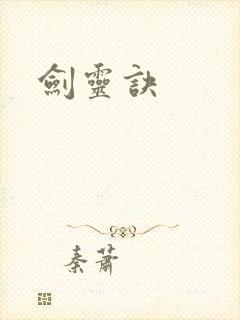 劍靈訣
秦蕭